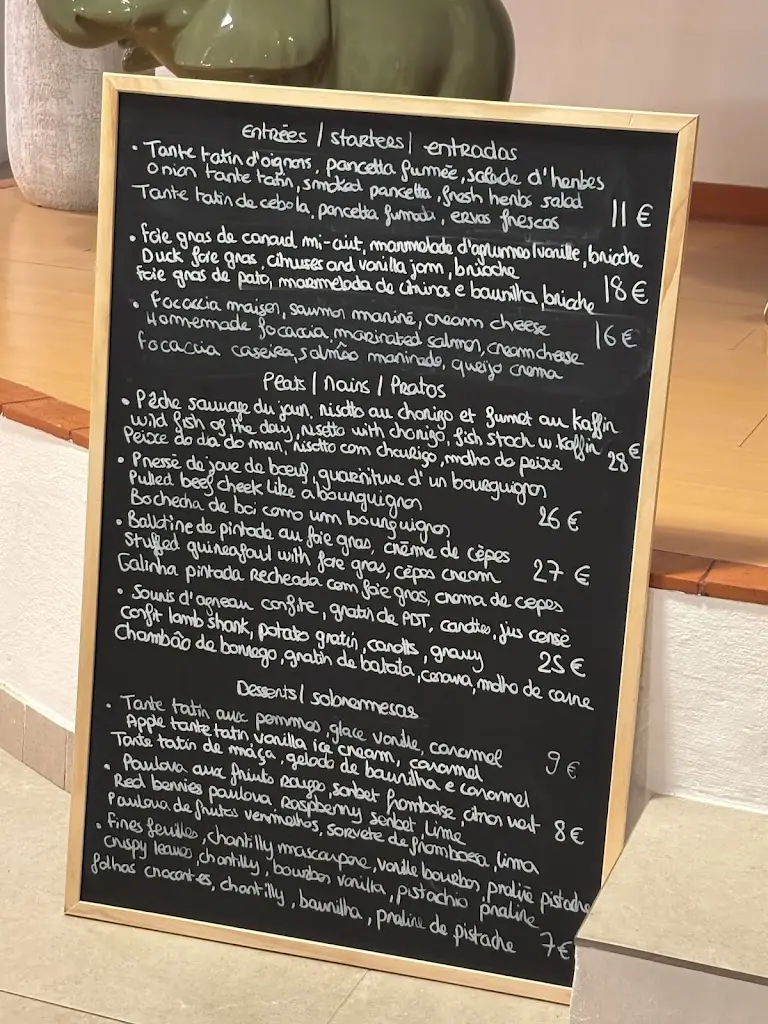 Entrées / starters / entradas
• Tarte tatin d'oignons, pancetta fumée, salade d'herbes
Onion tarte tatin, smoked pancetta, fresh herbs salad
Tarte tatin de cebola, pancetta fumada, ervas frescas 11 €
• Foie gras de canard mi-cuit, marmelade d'agrumes/vanille, brioche
Duck foie gras, citruses and vanilla jam, brioche
Foie gras de pato, marmelada de citrinos e baunilha, brioche 18 €
• Focaccia maison, saumon mariné, cream cheese
Homemade focaccia, marinated salmon, cream cheese 16 €
Focaccia caseira, salmão marinado, queijo creme
Plats / Mains / Pratos
• Pêche sauvage du jour, risotto au chorizo et fumet au kaffir
Wild fish of the day, risotto with chorizo, fish stock w. kaffir
Peixe do dia do mar, risotto com chouriço, molho do peixe 28 €
• Pressé de joue de bœuf, guarniture d'un bourguignon
Pulled beef cheek like a bourguignon
Bochecha de boi como um bourguignon 26 €
• Ballotine de pintade au foie gras, crème de cèpes
Stuffed guineafoul with foie gras, cèpes cream 27 €
Galinha pintada recheada com foie gras, crema de cepes
• Souris d'agneau confite, gratin de PDT, carottes, jus corsé
Confit lamb shank, potato gratin, carotts, gravy 25 €
Chambão de borrego, gratin de batata, cenoura, molho de carne
Desserts / sobremesas
• Tarte tatin aux pommes, glace vanille, caramel
Apple tarte tatin, vanilla ice cream, caramel 9 €
Tarte tatin de maça, gelado de baunilha e caramel
• Pavlova aux fruits rouge, sorbet framboise, citron vert
Red berries pavlova, Raspberry sorbet, lime 8 €
Pavlova de frutos vermelhos, sorvete de framboesa, lima
• Fines feuilles, chantilly mascarpone, vanille bourbon, praliné pistache
Crispy leaves, chantilly, bourbon vanilla, pistachio praline
folhas crocantes, chantilly, baunilha, praline de pistache 7 €